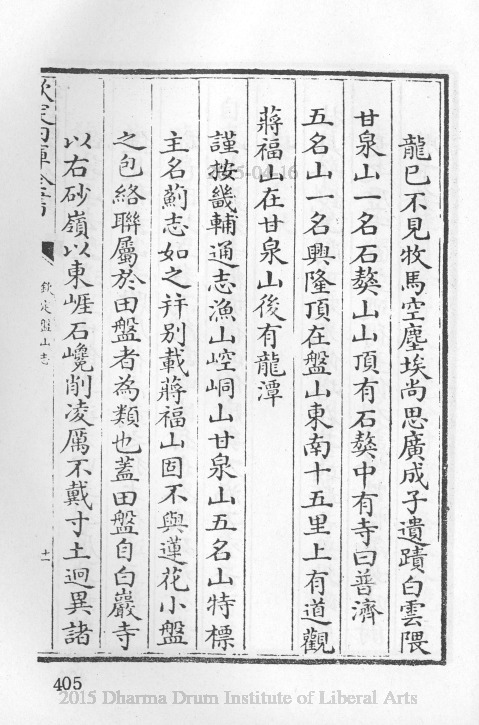 龍已不見牧馬空塵埃尚思廣成子遺蹟白雲隈
甘泉山一名石獒山山頂有石獒中有寺曰普濟
五名山一名興隆頂在盤山東南十五里上有道觀
蔣福山在甘泉山後有龍潭
謹按畿輔通志漁山崆峒山甘泉山五名山特標
主名薊志如之幷别載蔣福山固不與蓮花小盤
之包絡聯屬於田盤者為類也蓋田盤自白巖寺
以右砂嶺以東崕石巉削凌厲不戴寸土迥異諸
欽定盤山志
十一
405
2015 Dharma Drum Institute of Liberal Arts